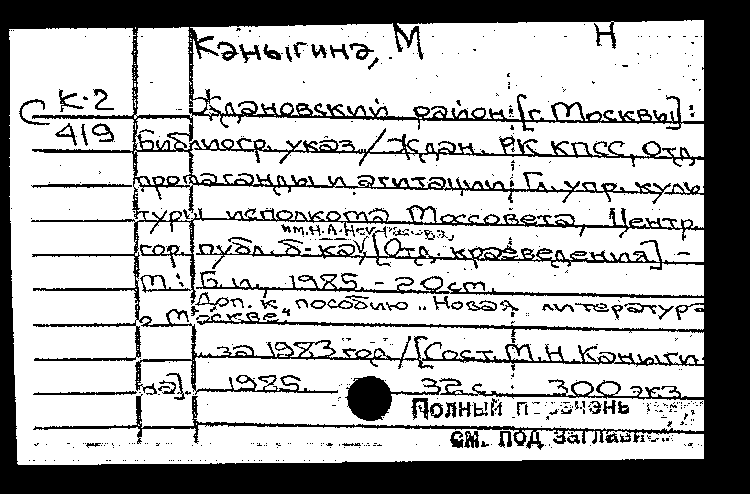 Каныгина, М Н
К-2
419
Ждановский район [г. Москвы]:
Библиогр. указ. / Ждан. РК КПСС, Отд.
пропаганды и агитации; Гл. упр. куль-
туры исполкома Моссовета, Центр.
им. Н.А. Некрасова,
гор. публ. б-ка, [Отд. краеведения]. -
М.: Б.и., 1985. - 20 см.
Доп. к пособию "Новая литература
о Москве".
... за 1983 год / [Сост. М.Н. Каныги-
на]. 1985. 32 с. 300 экз.
Полный перечень
см. под заглавием